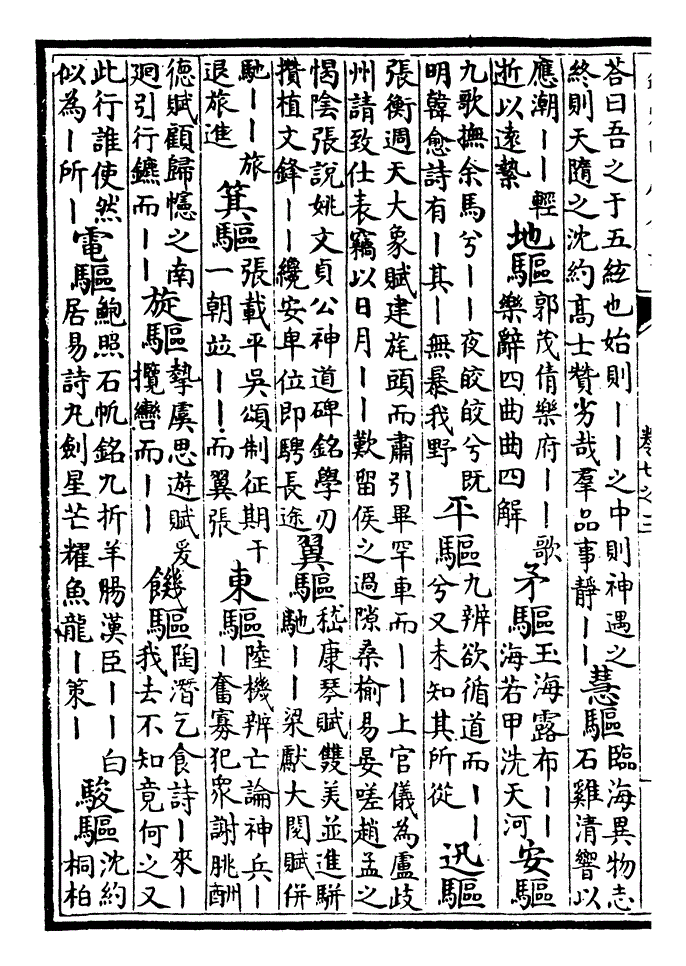 答曰吾之于五絃也始則丨丨之中則神遇之
終則天隨之沈約高士贊劣哉羣品事靜丨丨
慧驅
臨海異物志
石雞清響以
應潮丨丨輕
逝以遠縶
地驅
郭茂倩樂府丨丨歌
樂辭四曲曲四解
矛驅
玉海露布丨丨
海若甲洗天河
安驅
九歌撫余馬兮丨丨夜皎皎兮既
明韓愈詩有丨其丨無暴我野
平驅
九辨欲循道而丨丨
兮又未知其所從
迅驅
張衡週天大象賦建旄頭而肅引畢罕車而丨丨上官儀為盧歧
州請致仕表竊以日月丨丨歎留侯之過隙桑榆易晏嗟趙孟之
愒陰張說姚文貞公神道碑銘學刃
攢植文鋒丨丨纔安卑位即騁長途
翼驅
嵇康琴賦雙美並進駢
馳丨丨梁獻大閱賦併
馳丨丨旅
退旅進
箕驅
張載平吳頌制征期于
一朝竝丨丨而翼張
東驅
陸機辨亡論神兵丨
丨奮寡犯衆謝朓酬
德賦顧歸憓之南
廻引行鑣而丨丨
旋驅
摯虞思遊賦爰
攬轡而丨丨
饑驅
陶潛乞食詩丨來丨
我去不知竟何之又
此行誰使然
似為丨所丨
電驅
鮑照石帆銘九折羊腸漢臣丨丨白
居易詩九劍星芒耀魚龍丨策丨
駿驅
沈約
桐柏
卷七之三